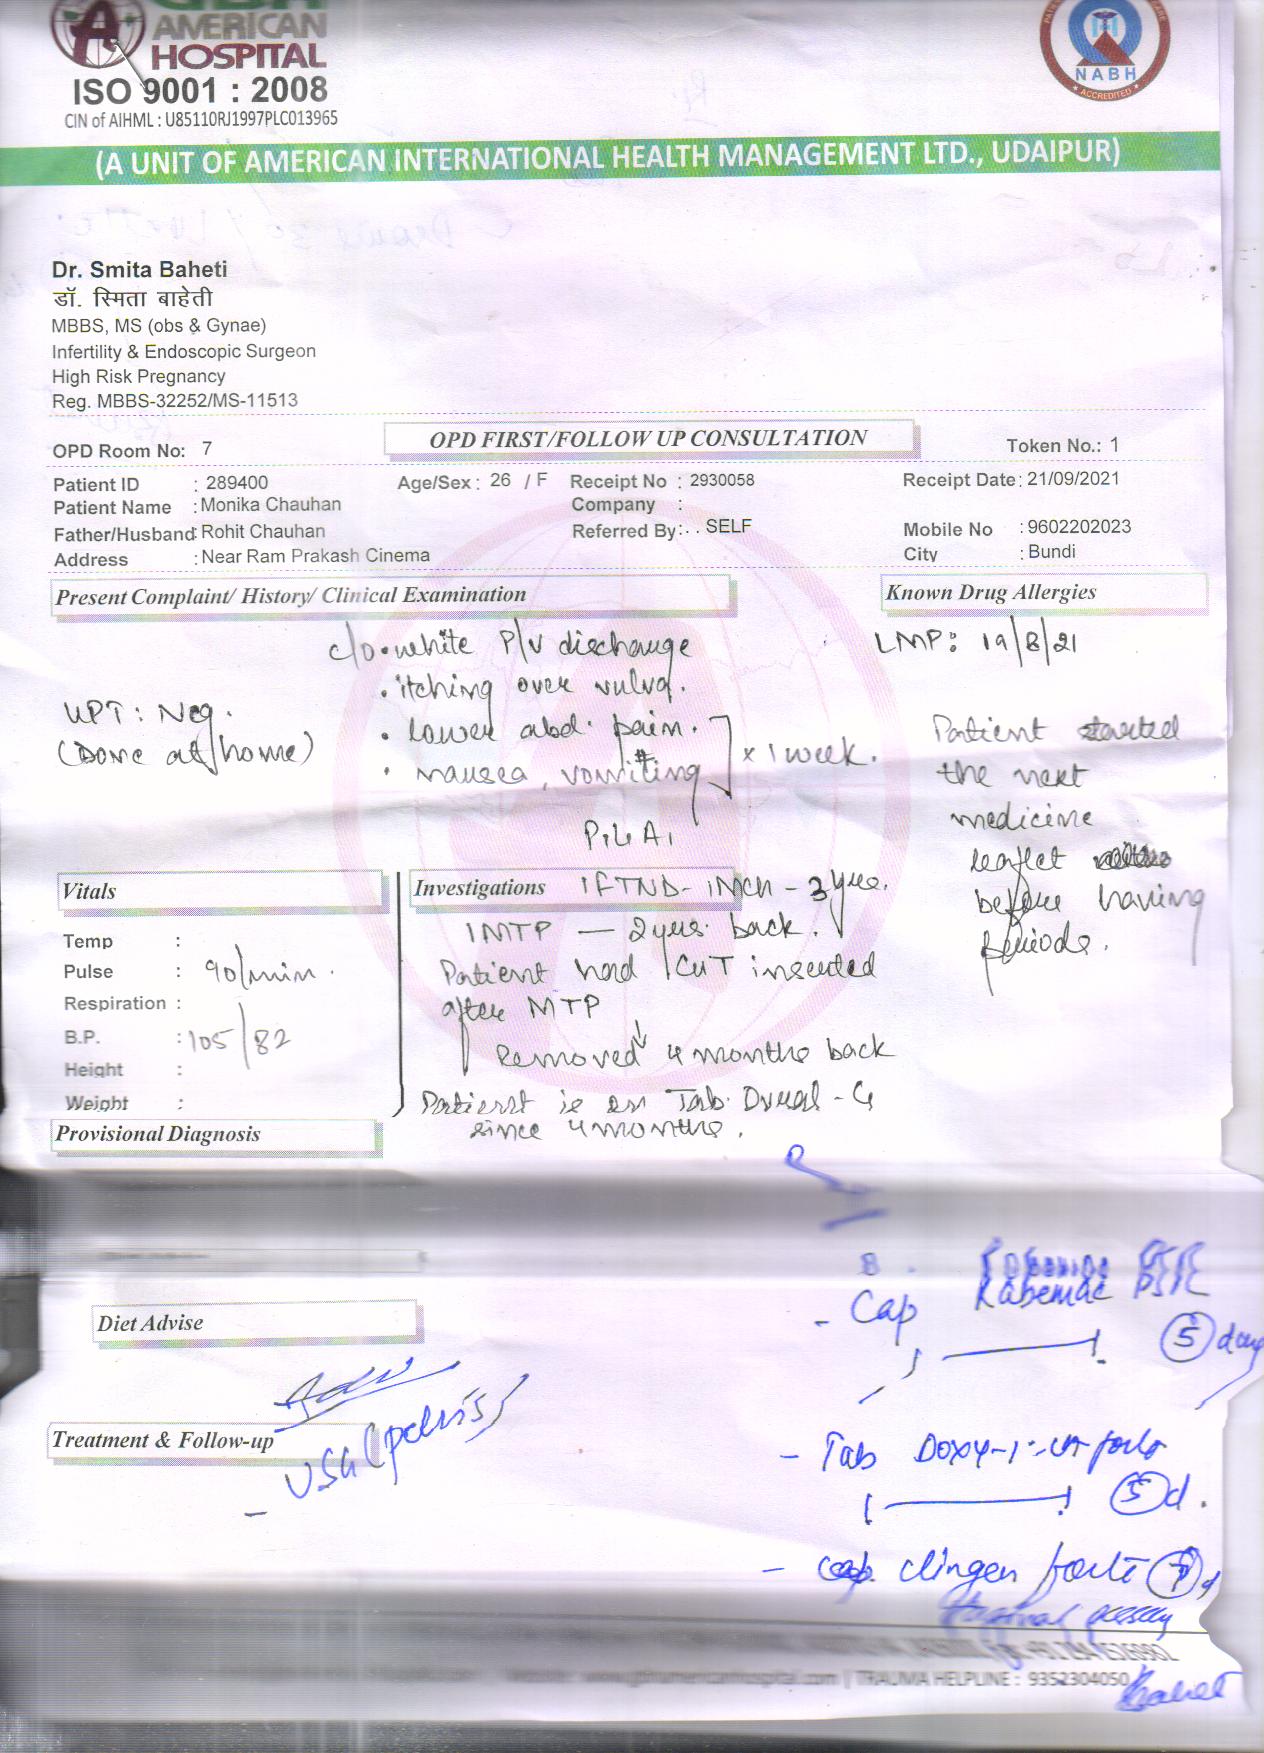 GBH
AMERICAN
HOSPITAL
ISO 9001 : 2008
CIN of AIHML : U85110RJ1997PLC013965
NABH
ACCREDITED
(A UNIT OF AMERICAN INTERNATIONAL HEALTH MANAGEMENT LTD., UDAIPUR)
Dr. Smita Baheti
डॉ. स्मिता बाहेती
MBBS, MS (obs & Gynae)
Infertility & Endoscopic Surgeon
High Risk Pregnancy
Reg. MBBS-32252/MS-11513
OPD Room No: 7
OPD FIRST/FOLLOW UP CONSULTATION
Token No.: 1
Patient ID : 289400 Age/Sex : 26 / F Receipt No : 2930058 Receipt Date : 21/09/2021
Patient Name : Monika Chauhan Company :
Father/Husband: Rohit Chauhan Referred By: . . SELF Mobile No : 9602202023
Address : Near Ram Prakash Cinema City : Bundi
Present Complaint/ History/ Clinical Examination
Known Drug Allergies
c/o • white P/V discharge
LMP: 19/8/21
• itching over vulva.
UPT: Neg.
(Done at home)
• lower abd. pain.
• nausea, vomiting
x 1 week.
Patient started
the next
medicine
leaflet
before having
periods.
P1L1A1
Vitals
Temp :
Pulse : 90/min.
Respiration :
B.P. : 105/82
Height :
Weight :
Investigations
1FTND- 1Mch - 3 yrs.
1MTP — 2 yrs. back.
Patient had CuT inserted
after MTP
Removed 4 months back
Patient is on Tab.
since 4 months.
Provisional Diagnosis
Diet Advise
- Cap Rabemac DSR
5 days
Treatment & Follow-up
Adv
- USG (pelvis)
- Tab Doxy-1
forte
5 d.
- cap. clingen forte 7 d
vaginal pessary
TRAUMA HELPLINE : 9352304050